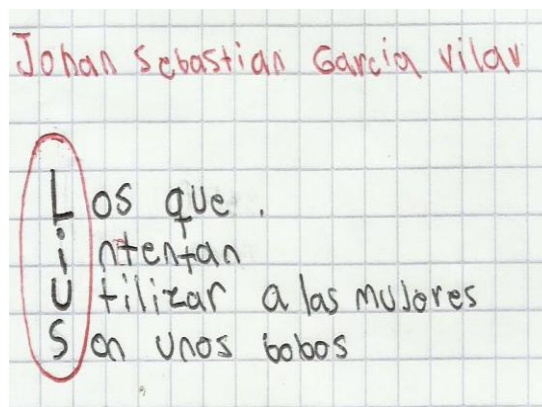 Johan Sebastian Garcia vilav
Los que.
intentan
Utilizar a las mujores
Son unos bobos